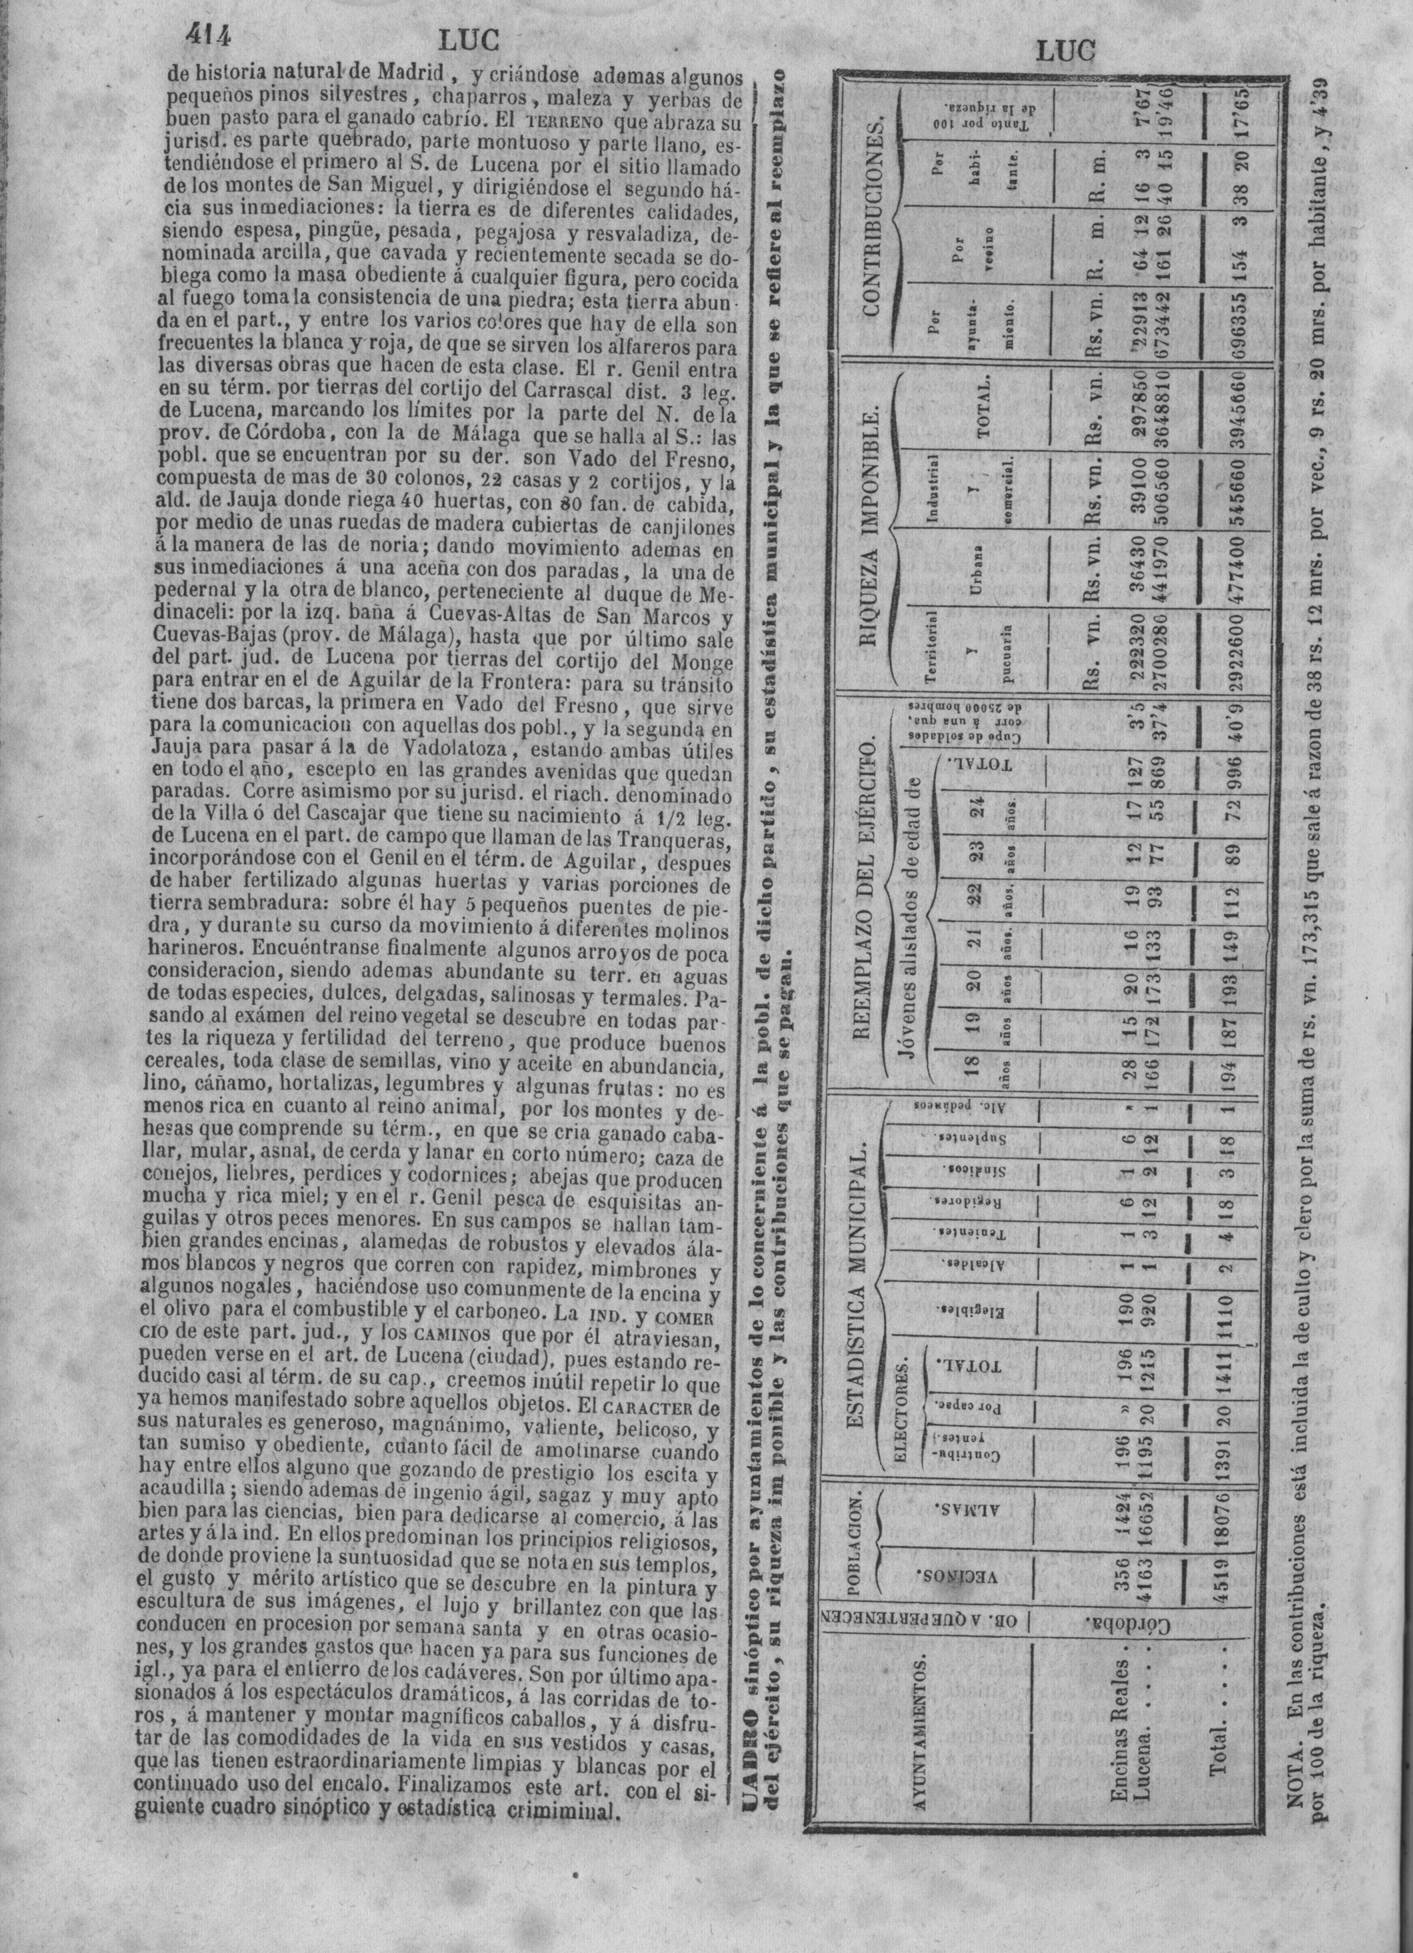 414
LUC
LUC
de historia natural de Madrid , y criándose ademas algunos
pequeños pinos silvestres, chaparros, maleza y yerbas de
buen pasto para el ganado cabrío. El TERRENO que abraza su
jurisd. es parte quebrado, parte montuoso y parte llano, es-
tendiéndose el primero al S. de Lucena por el sitio llamado
de los montes de San Miguel, y dirigiéndose el segundo há-
cia sus inmediaciones: la tierra es de diferentes calidades,
siendo espesa, pingüe, pesada, pegajosa y resvaladiza, de-
nominada arcilla, que cavada y recientemente secada se do-
blega como la masa obediente á cualquier figura, pero cocida
al fuego toma la consistencia de una piedra; esta tierra abun-
da en el part., y entre los varios colores que hay de ella son
frecuentes la blanca y roja, de que se sirven los alfareros para
las diversas obras que hacen de esta clase. El r. Genil entra
en su térm. por tierras del cortijo del Carrascal dist. 3 leg.
de Lucena, marcando los límites por la parte del N. de la
prov. de Córdoba, con la de Málaga que se halla al S.: las
pobl. que se encuentran por su der. son Vado del Fresno,
compuesta de mas de 30 colonos, 22 casas y 2 cortijos, y la
ald. de Jauja donde riega 40 huertas, con 80 fan. de cabida,
por medio de unas ruedas de madera cubiertas de canjilones
á la manera de las de noria; dando movimiento ademas en
sus inmediaciones á una aceña con dos paradas, la una de
pedernal y la otra de blanco, perteneciente al duque de Me-
dinaceli: por la izq. baña á Cuevas-Altas de San Marcos y
Cuevas-Bajas (prov. de Málaga), hasta que por último sale
del part. jud. de Lucena por tierras del cortijo del Monge
para entrar en el de Aguilar de la Frontera: para su tránsito
tiene dos barcas, la primera en Vado del Fresno, que sirve
para la comunicacion con aquellas dos pobl., y la segunda en
Jauja para pasar á la de Vadolatoza, estando ambas útiles
en todo el año, escepto en las grandes avenidas que quedan
paradas. Corre asimismo por su jurisd. el riach. denominado
de la Villa ó del Cascajar que tiene su nacimiento á 1/2 leg.
de Lucena en el part. de campo que llaman de las Tranqueras,
incorporándose con el Genil en el térm. de Aguilar, despues
de haber fertilizado algunas huertas y varias porciones de
tierra sembradura: sobre él hay 5 pequeños puentes de pie-
dra, y durante su curso da movimiento á diferentes molinos
harineros. Encuéntranse finalmente algunos arroyos de poca
consideracion, siendo ademas abundante su terr. en aguas
de todas especies, dulces, delgadas, salinosas y termales. Pa-
sando al exámen del reino vegetal se descubre en todas par-
tes la riqueza y fertilidad del terreno, que produce buenos
cereales, toda clase de semillas, vino y aceite en abundancia,
lino, cáñamo, hortalizas, legumbres y algunas frutas: no es
menos rica en cuanto al reino animal, por los montes y de-
hesas que comprende su térm., en que se cria ganado caba-
llar, mular, asnal, de cerda y lanar en corto número; caza de
conejos, liebres, perdices y codornices; abejas que producen
mucha y rica miel; y en el r. Genil pesca de esquisitas an-
guilas y otros peces menores. En sus campos se hallan tam-
bien grandes encinas, alamedas de robustos y elevados ála-
mos blancos y negros que corren con rapidez, mimbrones y
algunos nogales, haciéndose uso comunmente de la encina y
el olivo para el combustible y el carboneo. La IND. y COMER
CIO de este part. jud., y los CAMINOS que por él atraviesan,
pueden verse en el art. de Lucena (ciudad), pues estando re-
ducido casi al térm. de su cap., creemos inútil repetir lo que
ya hemos manifestado sobre aquellos objetos. El CARACTER de
sus naturales es generoso, magnánimo, valiente, belicoso, y
tan sumiso y obediente, cuanto fácil de amotinarse cuando
hay entre ellos alguno que gozando de prestigio los escita y
acaudilla; siendo ademas de ingenio ágil, sagaz y muy apto
bien para las ciencias, bien para dedicarse al comercio, á las
artes y á la ind. En ellos predominan los principios religiosos,
de donde proviene la suntuosidad que se nota en sus templos,
el gusto y mérito artístico que se descubre en la pintura y
escultura de sus imágenes, el lujo y brillantez con que las
conducen en procesion por semana santa y en otras ocasio-
nes, y los grandes gastos que hacen ya para sus funciones de
igl., ya para el entierro de los cadáveres. Son por último apa-
sionados á los espectáculos dramáticos, á las corridas de to-
ros, á mantener y montar magníficos caballos, y á disfru-
tar de las comodidades de la vida en sus vestidos y casas,
que las tienen estraordinariamente limpias y blancas por el
continuado uso del encalo. Finalizamos este art. con el si-
guiente cuadro sinóptico y estadística crimiminal.
UADRO sinóptico por ayuntamientos de lo concerniente á la pobl. de dicho partido, su estadística municipal y la que se refiere al reemplazo
del ejército, su riqueza im ponible y las contribuciones que se pagan.
AYUNTAMIENTOS.
OB. A QUE PERTENECEN
POBLACION.
VECINOS.
ALMAS.
ESTADISTICA MUNICIPAL.
ELECTORES.
Contribu-
yentes.
Por capac.
TOTAL.
Elegibles.
Alcaldes.
Tenientes.
Regidores.
Síndicos.
Suplentes.
Alc. pedáneos
REEMPLAZO DEL EJÉRCITO.
Jóvenes alistados de edad de
18 años
19 años
20 años
21 años.
22 años.
23 años
24 años.
TOTAL.
Cupo de soldados
corr á una qua,
de 25000 hombres
RIQUEZA IMPONIBLE.
Territorial
Y
pucuaria
Urbana
Industrial
Y
comercial.
TOTAL.
CONTRIBUCIONES.
Por
ayunta-
miento.
Por
vecino
Por
habi-
tante.
Tanto por 100
de la riqueza.
Rs. vn. Rs. vn. Rs. vn. Rs. vn. Rs. vn. R. m. R. m.
Córdoba.
Encinas Reales . 356 1424 196 » 196 190 1 1 6 1 6 » 28 15 20 16 19 12 17 127 3'5 222320 36430 39100 297850 22913 64 12 16 3 7'67
Lucena. . . . . 4163 16652 1195 20 1215 920 1 3 12 2 12 1 166 172 173 133 93 77 55 869 37'4 2700280 441970 506560 3648810 673442 161 26 40 15 19'46
Total. . . . . 4519 18076 1391 20 1411 1110 2 4 18 3 18 1 194 187 193 149 112 89 72 996 40'9 2922600 477400 545660 3945660 696355 154 3 38 20 17'65
NOTA. En las contribuciones está incluida la de culto y clero por la suma de rs. vn. 173,315 que sale á razon de 38 rs. 12 mrs. por vec., 9 rs. 20 mrs. por habitante, y 4'39
por 100 de la riqueza.